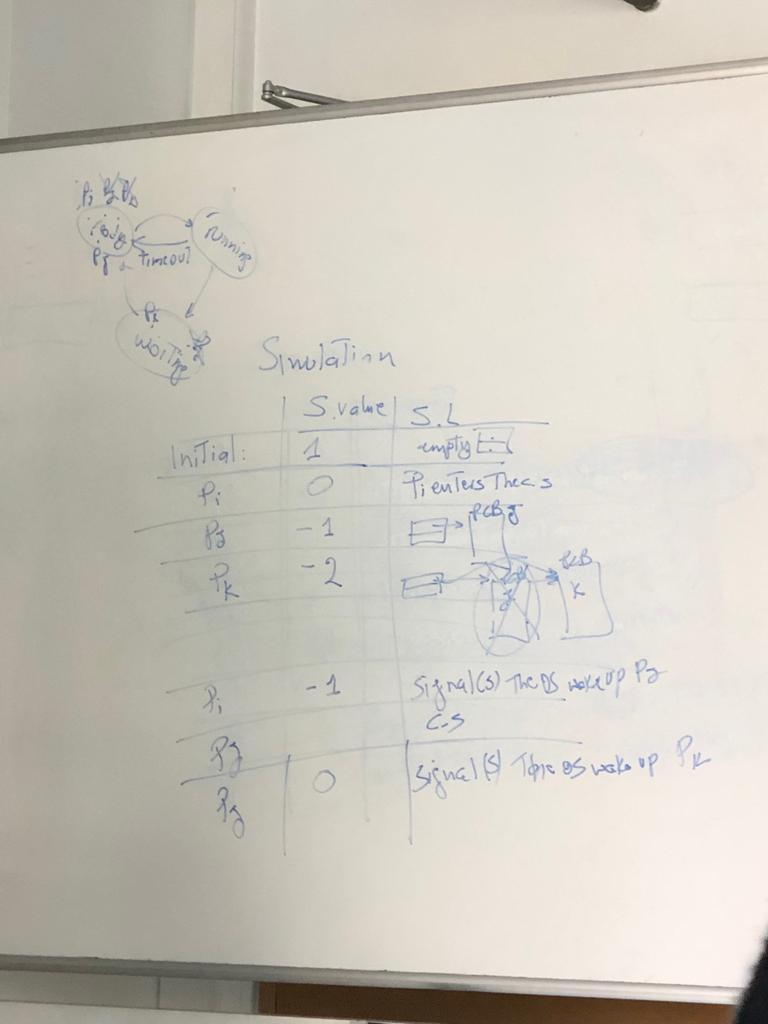 Pi Pj Pk
ready
running
Pj
Timeout
waiting
Simulation
S.value S.L
Initial: 1 empty
Pi 0 Pi enters The c s
Pj -1 PCB J
Pk -2 PCB K
Pi -1 Signal(s) The OS wake up Pj
Pj C.S
Pj 0 Signal(s) The OS wake up Pk